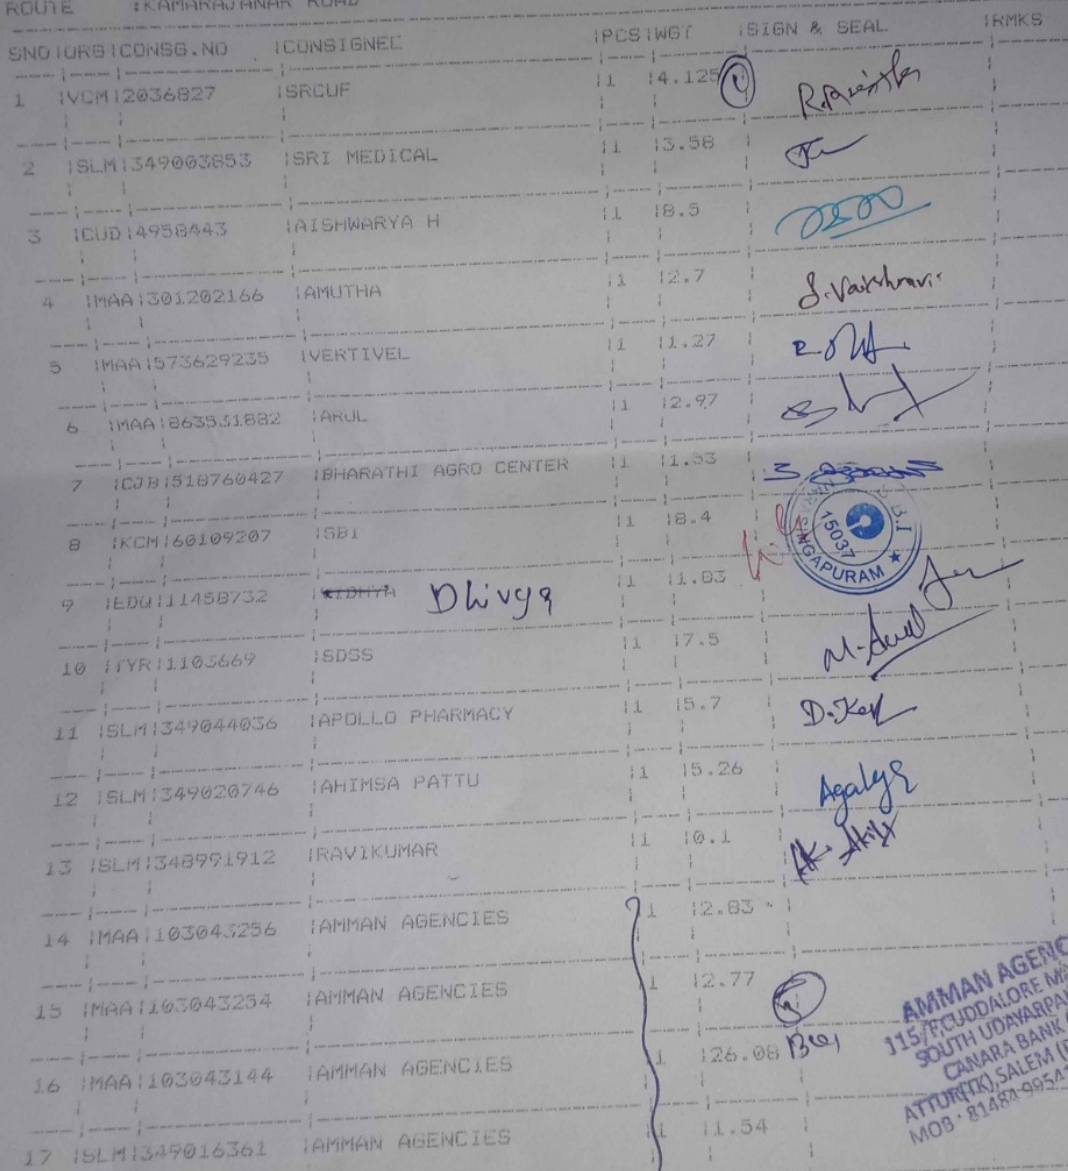 ROUTE :KAMARAJANAR ROAD
SNO|ORG|CONSG.NO |CONSIGNEE |PCS|WGT |SIGN & SEAL |RMKS
1 |VCM|2036827 |SRCUF |1 |4.125
2 |SLM|349003853 |SRI MEDICAL |1 |3.58
3 |CUD|4958443 |AISHWARYA H |1 |8.5
4 |MAA|301202166 |AMUTHA |1 |2.7 S.Vaishnavi
5 |MAA|573629235 |VERTIVEL |1 |1.27
6 |MAA|863531882 |ARUL |1 |2.97
7 |CJB|518760427 |BHARATHI AGRO CENTER |1 |1.53
8 |KCM|60109207 |SBI |1 |8.4 S.B.I 15037 NARASINGAPURAM
9 |EDU|11458732 |VIDHYA Dhivya |1 |1.83
10 |TYR|1103669 |SDSS |1 |7.5
11 |SLM|349044036 |APOLLO PHARMACY |1 |5.7
12 |SLM|349020746 |AHIMSA PATTU |1 |5.26 Agalya
13 |SLM|348991912 |RAVIKUMAR |1 |0.1
14 |MAA|103043256 |AMMAN AGENCIES |1 |2.83
15 |MAA|103043254 |AMMAN AGENCIES |1 |2.77
16 |MAA|103043144 |AMMAN AGENCIES |1 |26.08
17 |SLM|349016361 |AMMAN AGENCIES |1 |1.54
AMMAN AGENC
115/F,CUDDALORE M
SOUTH UDAYARPA
CANARA BANK
ATTUR(TK),SALEM
MOB : 81484 9954